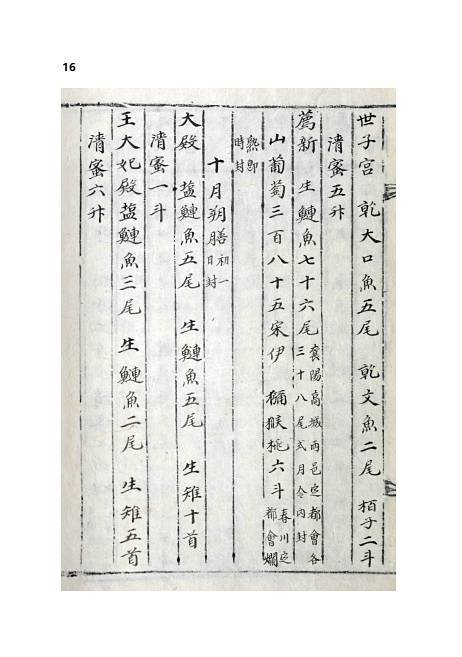 16
世子宮 乾大口魚五尾 乾文魚二尾 栢子二斗
清蜜五升
薦新 生鰱魚七十六尾 襄陽高城兩邑定都會各三十八尾式月令內封
山葡萄三百八十五朶伊 獼猴桃六斗 春川定都會爛
熟即時封
十月朔膳 初一日封
大殿 塩鰱魚五尾 生鰱魚五尾 生雉十首
清蜜一斗
王大妃殿 塩鰱魚三尾 生鰱魚二尾 生雉五首
清蜜六升